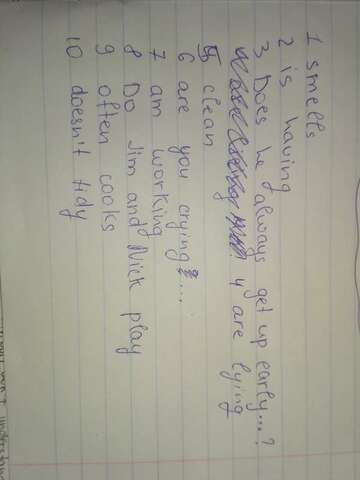 1 smells
2 is having
3 Does he always get up early...?
4 are lying
5 clean
6 are you crying...
7 am working
8 Do Jim and Nick play
9 often cooks
10 doesn't tidy